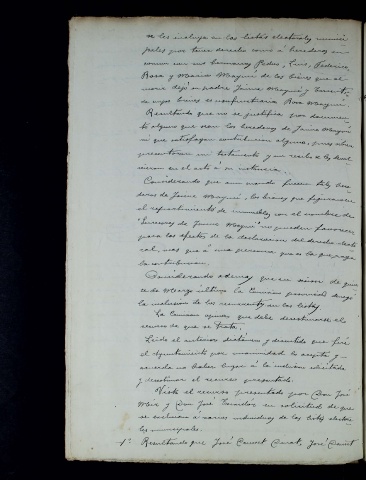 se les incluya en las listas electorales munici-
pales por tener derecho como á herederos en
comun con sus hermanos Pedro, Luis, Federico,
Rosa y Maria Magriñá de los bienes que al
morir dejó su padre Jaime Magriñá y
de cuyos bienes es usufructuaria Rosa Magriñá.
Resultando que no se justifica por documen-
to alguno que sean los herederos de Jaime Magriñá
ni que satisfagan contribucion alguna, pues
presentaron un testamento y un recibo
en el acto á su instancia.
Considerando que aun cuando fuesen tales here-
deros de Jaime Magriñá, los bienes que figuran en
el repartimiento de inmuebles con el nombre de
"Herederos de Jaime Magriñá" no pueden favorecer
para los efectos de la declaracion del derecho electo-
ral, mas que á una persona que es la que paga
la contribucion.
Considerando ademas que en sesion de quin-
ce de Marzo último la Comision provincial denegó
la inclusion de los recurrentes en las listas.
La Comision opina que debe desestimarse el
recurso de que se trata.
Leido el anterior dictámen y discutido que fué
el Ayuntamiento por unanimidad lo acepta y
acuerda no haber lugar á la inclusion solicitada
y desestimar el recurso presentado.
Visto el recurso presentado por Don José
y Don José en solicitud de que
se excluyan á varios individuos de las listas electora-
les municipales.
1º Resultando que José José